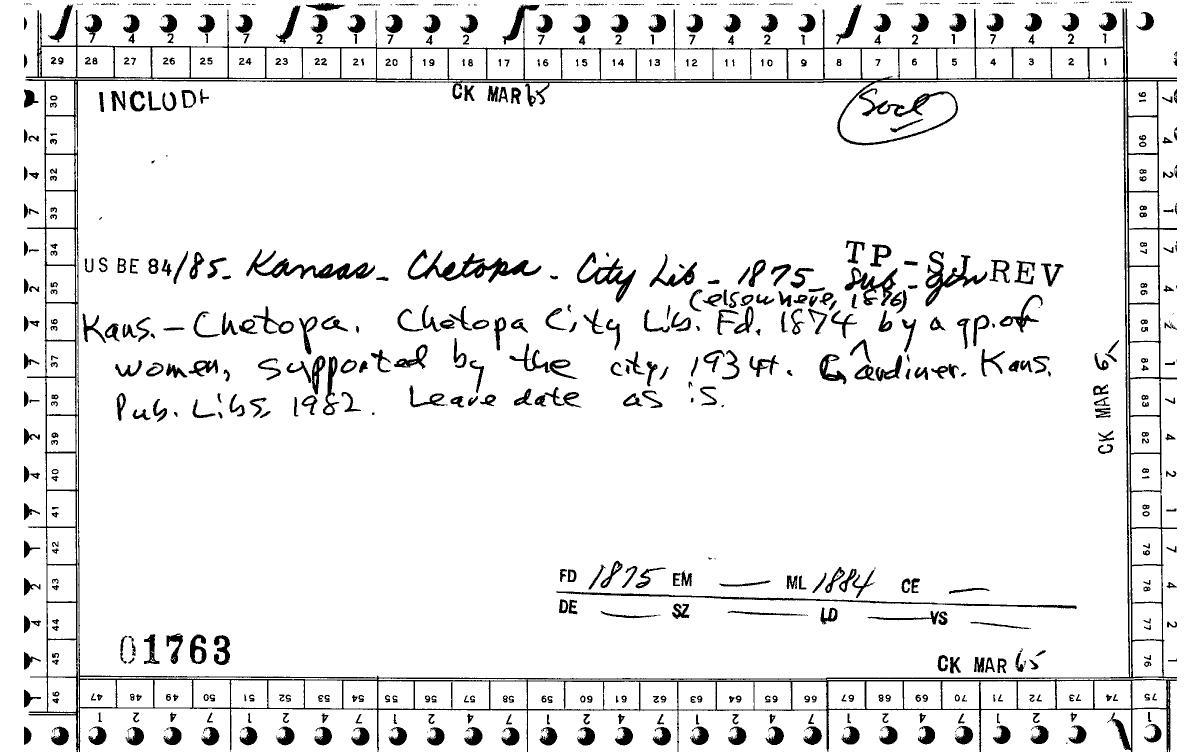 7 4 2 1 7 4 2 1 7 4 2 1 7 4 2 1 7 4 2 1 7 4 2 1 7 4 2 1
29 28 27 26 25 24 23 22 21 20 19 18 17 16 15 14 13 12 11 10 9 8 7 6 5 4 3 2 1
INCLUDE CK MAR 65 Socl
TP-SJ REV
US BE 84/85- Kansas- Chetopa- City Lib- 1875- Sub-gen
(elsewhere, 1876)
Kans.-Chetopa. Chetopa City Lib. Fd. 1874 by a gp. of
women, supported by the city, 1934+. Gardiner. Kans.
Pub. Libs, 1982. Leave date as is.
CK MAR 65
FD 1875 EM — ML 1884 CE —
DE — SZ — LD — VS —
01763
CK MAR 65
30 31 32 33 34 35 36 37 38 39 40 41 42 43 44 45 46
91 90 89 88 87 86 85 84 83 82 81 80 79 78 77 76 75
47 48 49 50 51 52 53 54 55 56 57 58 59 60 61 62 63 64 65 66 67 68 69 70 71 72 73 74
1 2 4 7 1 2 4 7 1 2 4 7 1 2 4 7 1 2 4 7 1 2 4 7 1 2 4